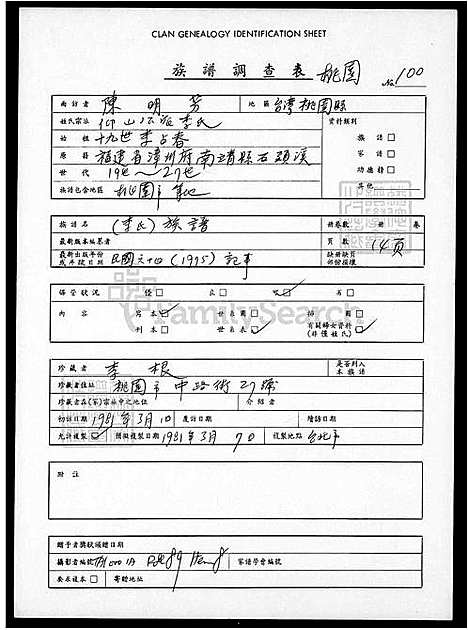 CLAN GENEALOGY IDENTIFICATION SHEET
族譜調查表 桃園 No 100
面訪者 陳明芳 地區 台灣桃園縣
姓氏宗派 李氏 資料類別
始祖 十九世李占春 族譜 □
原籍 福建省漳州府南靖縣 家譜 □
世代 19世~27世 功德榜 □
族譜包含地區 桃園市 其他
族譜名 (李氏)族譜 冊卷數 冊 卷
最新版本編纂者 頁數 14頁
最新出版年份或序跋日期 民國六十四(1975)記事 缺冊缺頁部份損壞
保管狀況 優 □ 良 □ 劣 □
內容 寫本 世系圖 □ 有關婦女資料(非僅姓氏)
刊本 □ 世系表
FamilySearch
珍藏者 李根 是否列入本族譜
珍藏者住址 桃園市中路街27號
珍藏者在(家)宗族中之地位 介紹者
初訪日期 1981年3月10 覆訪日期 續訪日期
允許複製 擬複製日期 1981年3月 日 複製地點 台北市
附註
贈予者獎狀頒贈日期
攝影者編號 家譜學會編號
要求複本 □ 寄贈地址